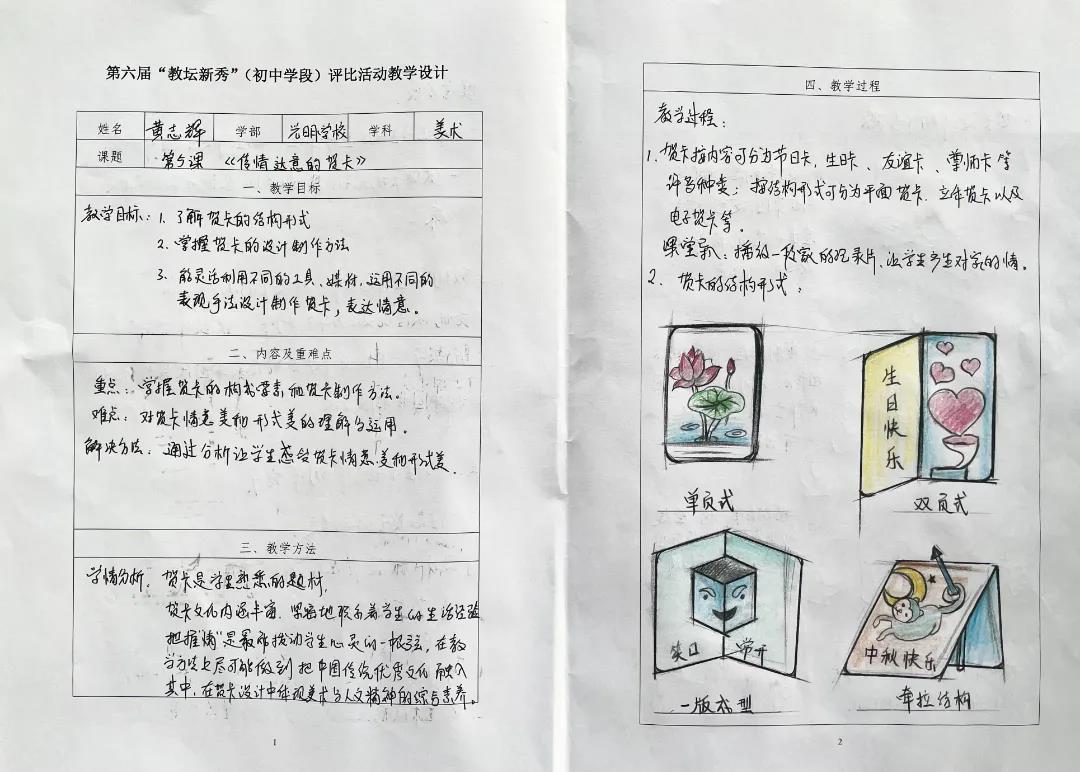 第六届“教坛新秀”（初中学段）评比活动教学设计
姓名 黄志辉 学部 光明学校 学科 美术
课题 第5课 《传情达意的贺卡》
一、教学目标
教学目标：1. 了解贺卡的结构形式
2. 掌握贺卡的设计制作方法
3. 能灵活利用不同的工具、媒材，运用不同的
表现手法设计制作贺卡，表达情意。
二、内容及重难点
重点：掌握贺卡的构成要素和贺卡制作方法。
难点：对贺卡情意美和形式美的理解与运用。
解决方法：通过分析让学生感悟贺卡情意美和形式美
三、教学方法
学情分析：贺卡是学生熟悉的题材，
贺卡文化内涵丰富，紧密地联系着学生的生活经验
把握“情”是最能拨动学生心灵的一根弦，在教
学方法上尽可能做到把中国传统优秀文化融入
其中，在贺卡设计中体现美术与人文精神的综合素养。
1
四、教学过程
教学过程：
1. 贺卡按内容可分为节日卡，生日卡、友谊卡、尊师卡等
许多种类；按结构形式可分为平面贺卡、立体贺卡以及
电子贺卡等。
课堂导入：播放一段家的纪录片、让学生产生对家的情。
2. 贺卡的结构形式：
生日快乐
单页式
双页式
笑口 常开
中秋快乐
一版成型
牵拉结构
2